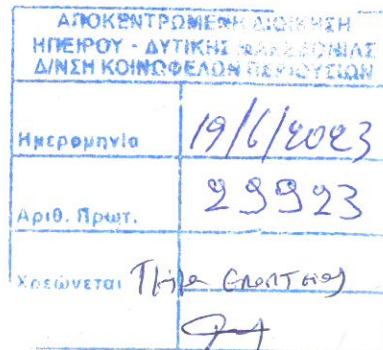 ΑΠΟΚΕΝΤΡΩΜΕΝΗ ΔΙΟΙΚΗΣΗ
ΗΠΕΙΡΟΥ - ΔΥΤΙΚΗΣ ΜΑΚΕΔΟΝΙΑΣ
Δ/ΝΣΗ ΚΟΙΝΩΦΕΛΩΝ ΠΕΡΙΟΥΣΙΩΝ
Ημερομηνία 19/6/2023
Αριθ. Πρωτ. 29923
Χρεώνεται Τμήμα Εποπτείας